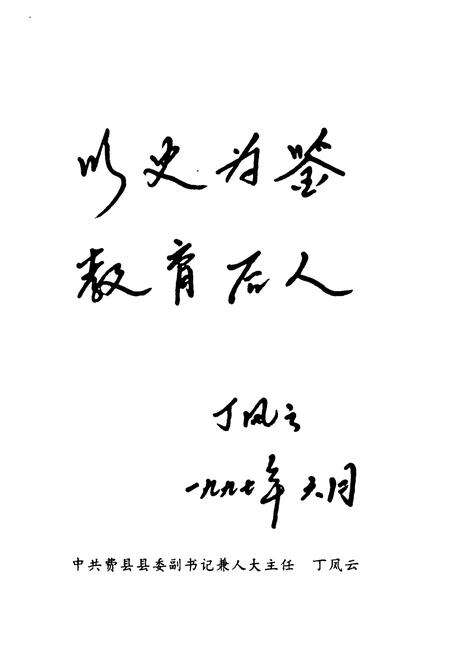 以史为鉴
教育后人
丁凤云
一九九七年六月
中共费县县委副书记兼人大主任 丁凤云